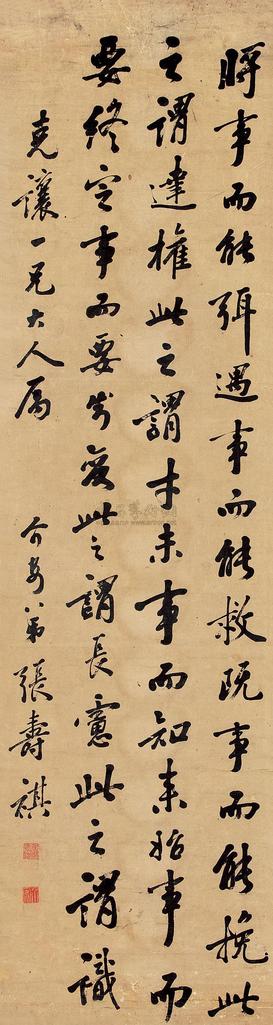 將事而能弭遇事而能救既事而能挽此
之謂達權此之謂才未事而知来始事而
要終定事而要此之謂長慮此之謂識
克讓一兄大人屬
弟張壽祺